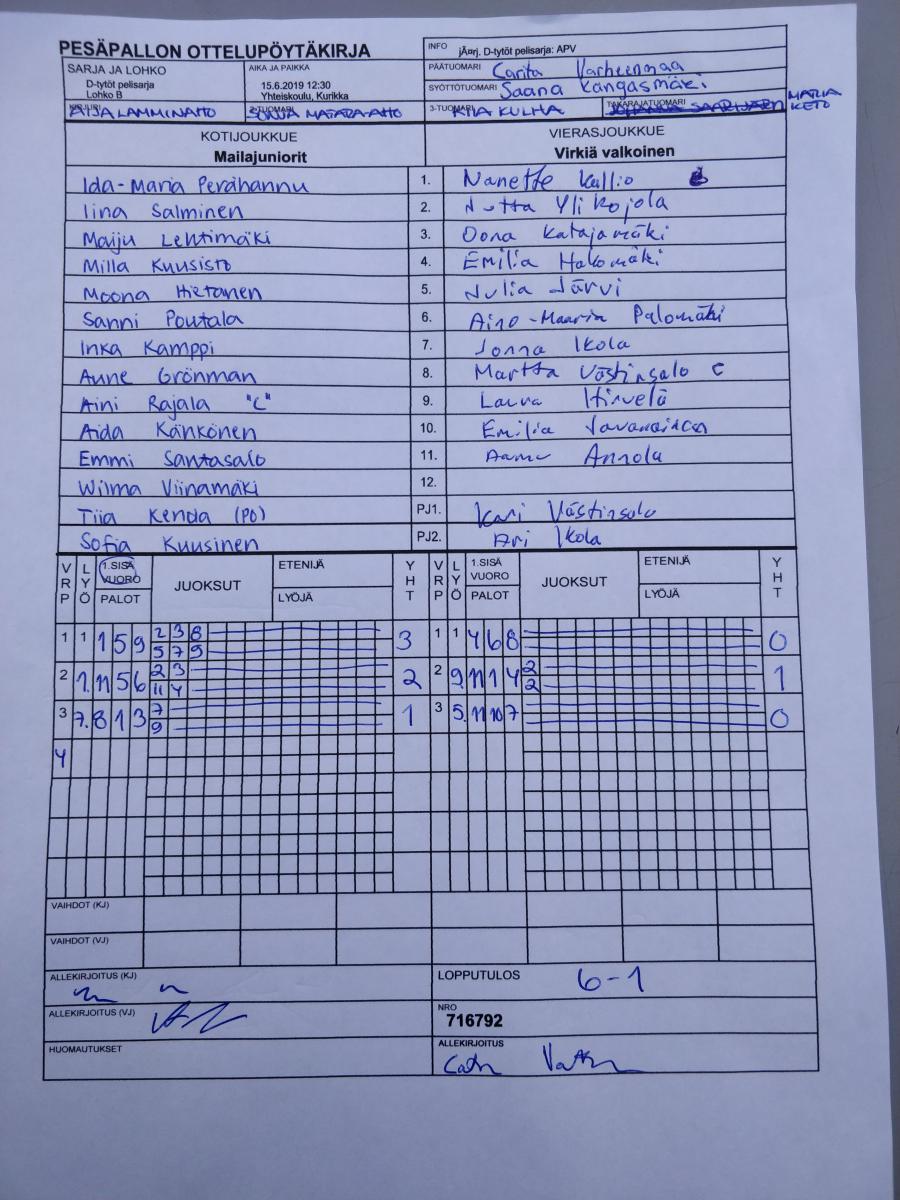 PESÄPALLON OTTELUPÖYTÄKIRJA
INFO jÄ¤rj. D-tytöt pelisarja: APV
SARJA JA LOHKO
D-tytöt pelisarja
Lohko B
AIKA JA PAIKKA
15.6.2019 12:30
Yhteiskoulu, Kurikka
PÄÄTUOMARI Carita Varheenmaa
SYÖTTÖTUOMARI Saana Kangasmäki
AIJA LAMMINAHO
2-TUOMARI
3-TUOMARI KIIA KULHA
TAKARAJATUOMARI MARIA KETO
KOTIJOUKKUE
Mailajuniorit
VIERASJOUKKUE
Virkiä valkoinen
Ida-Maria Perähannu 1. Nanette Kallio
Iina Salminen 2. Jutta Yli Kojola
Maiju Lehtimäki 3. Oona Katajamäki
Milla Kuusisto 4. Emilia Hakomäki
Moona Hietanen 5. Julia Järvi
Sanni Poutala 6. Aino-Maaria Palomäki
Inka Kamppi 7. Jonna Ikola
Aune Grönman 8. Martta Västinsalo C
Aini Rajala "C" 9. Laura Hirvelä
Aida Känkönen 10. Emilia
Emmi Santasalo 11. Aamu Annola
Wilma Viinamäki 12.
Tiia Kenda (PO) PJ1. Kari Västinsalo
Sofia Kuusinen PJ2. Ari Ikola
VRP LYÖ 1.SISÄ VUORO PALOT JUOKSUT ETENIJÄ LYÖJÄ YHT VRP LYÖ 1.SISÄ VUORO PALOT JUOKSUT ETENIJÄ LYÖJÄ YHT
1 1 1 5 9 2 3 8 3 1 1 4 6 8 0
5 7 9
2 1. 11 5 6 2 3 2 2 9. 11 1 4 2 1
11 4 2
3 7. 8 1 3 7 1 3 5. 11 10 7 0
9
4
VAIHDOT (KJ)
VAIHDOT (VJ)
ALLEKIRJOITUS (KJ)
LOPPUTULOS 6-1
ALLEKIRJOITUS (VJ)
NRO
716792
HUOMAUTUKSET
ALLEKIRJOITUS